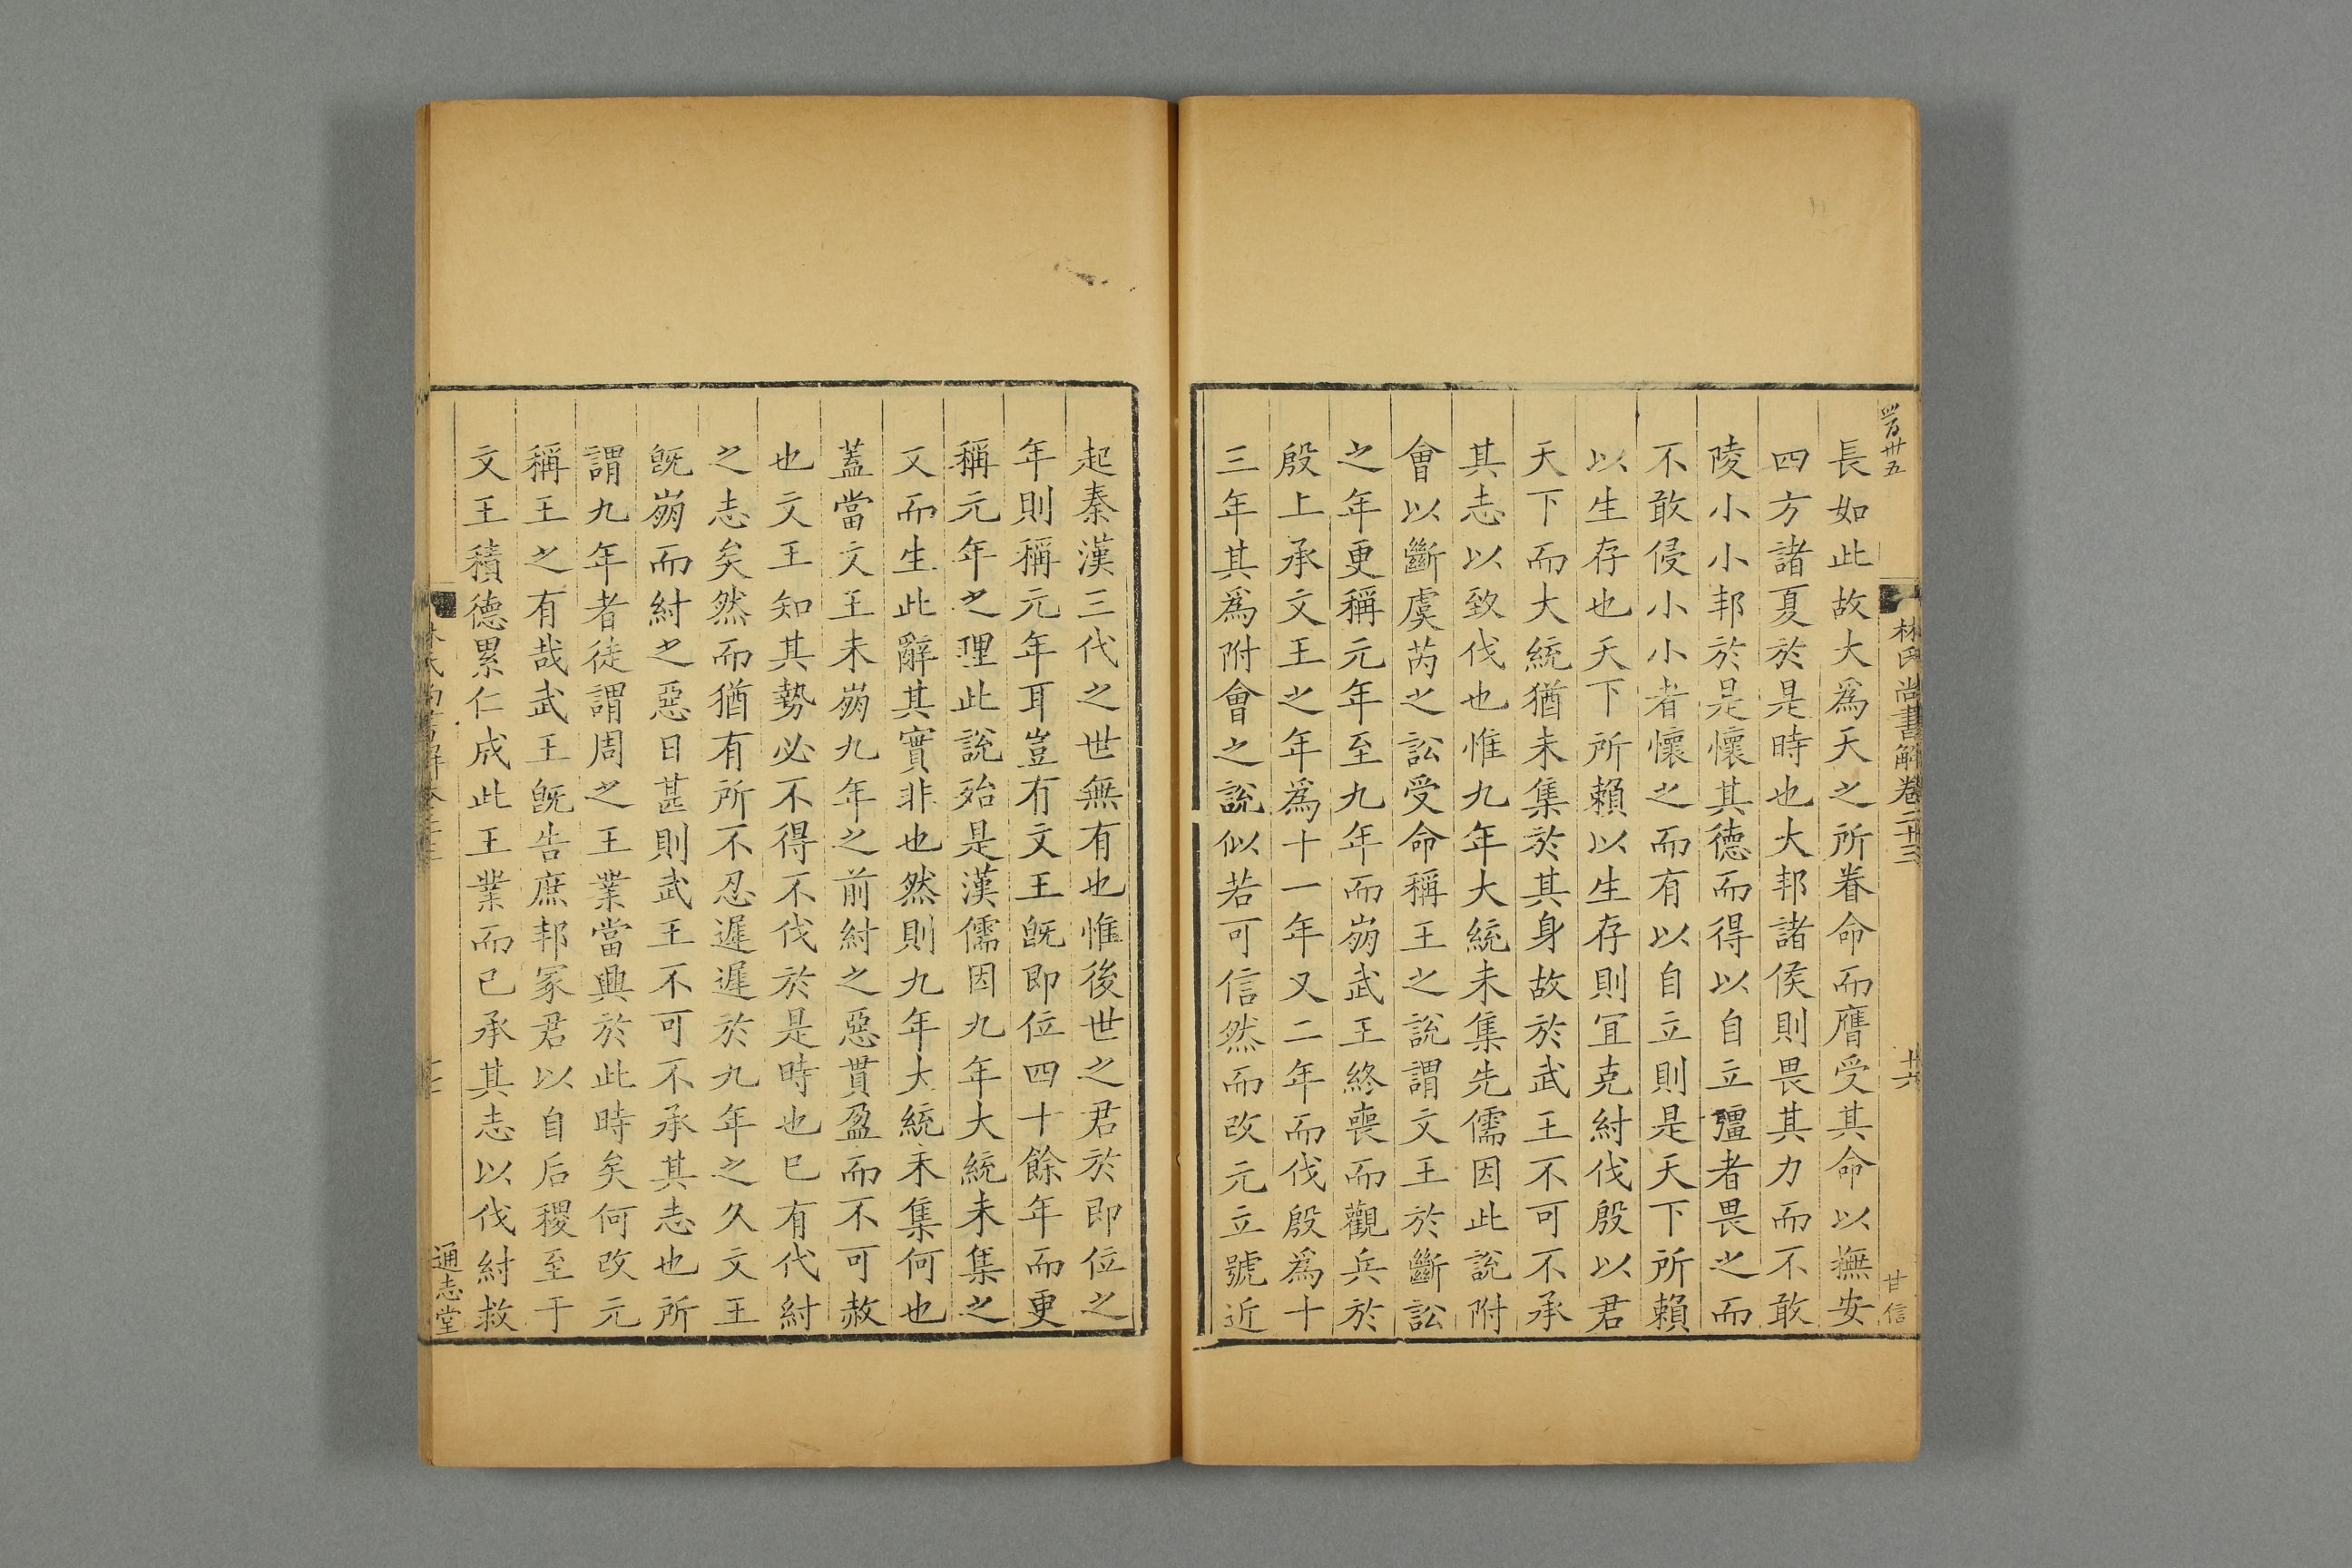 林氏尚書解卷二十三
甘信
長如此故大爲天之所眷命而膺受其命以撫安
四方諸夏於是時也大邦諸侯則畏其力而不敢
陵小小邦於是懷其德而得以自立彊者畏之而
不敢侵小小者懷之而有以自立則是天下所賴
以生存也天下所賴以生存則宜克紂伐殷以君
天下而大統猶未集於其身故於武王不可不承
其志以致伐也惟九年大統未集先儒因此說附
會以斷虞芮之訟受命稱王之說謂文王於斷訟
之年更稱元年至九年而崩武王終喪而觀兵於
殷上承文王之年爲十一年又二年而伐殷爲十
三年其爲附會之說似若可信然而改元立號近
起秦漢三代之世無有也惟後世之君於即位之
年則稱元年耳豈有文王旣即位四十餘年而更
稱元年之理此說殆是漢儒因九年大統未集之
文而生此辭其實非也然則九年大統未集何也
蓋當文王未崩九年之前紂之惡貫盈而不可赦
也文王知其勢必不得不伐於是時也已有代紂
之志矣然而猶有所不忍遲遲於九年之久文王
旣崩而紂之惡日甚則武王不可不承其志也所
謂九年者徒謂周之王業當興於此時矣何改元
稱王之有哉武王旣告庶邦冢君以自后稷至于
文王積德累仁成此王業而已承其志以伐紂救
通志堂